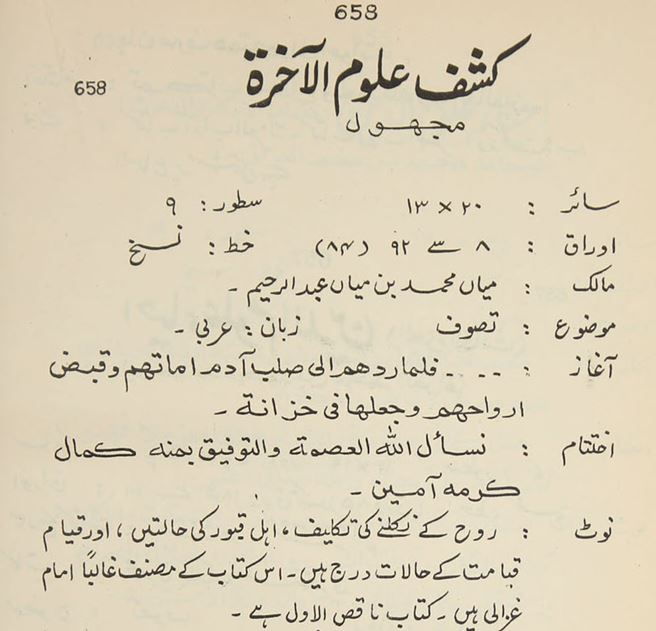 658
كشف علوم الآخرة
658
مجهول
سائز : ۲۰ × ۱۳ سطور: ۹
اوراق : ۸ سے ۹۲ (۸۴) خط: نسخ
مالک : میاں محمد بن میاں عبدالرحیم ۔
موضوع : تصوف زبان: عربی ۔
آغاز : ۔۔۔۔ فلما ردهم الى صلب آدم اماتهم وقبض
ارواحهم وجعلها فى خزانة ۔
اختتام : نسأل الله العصمة والتوفيق بمنه كمال
كرمه آمين ۔
نوٹ : روح کے نکلنے کی تکلیف، اہل قبور کی حالتیں، اور قیام
قیامت کے حالات درج ہیں۔ اس کتاب کے مصنف غالباً امام
غزالی ہیں ۔ کتاب ناقص الاول ہے ۔